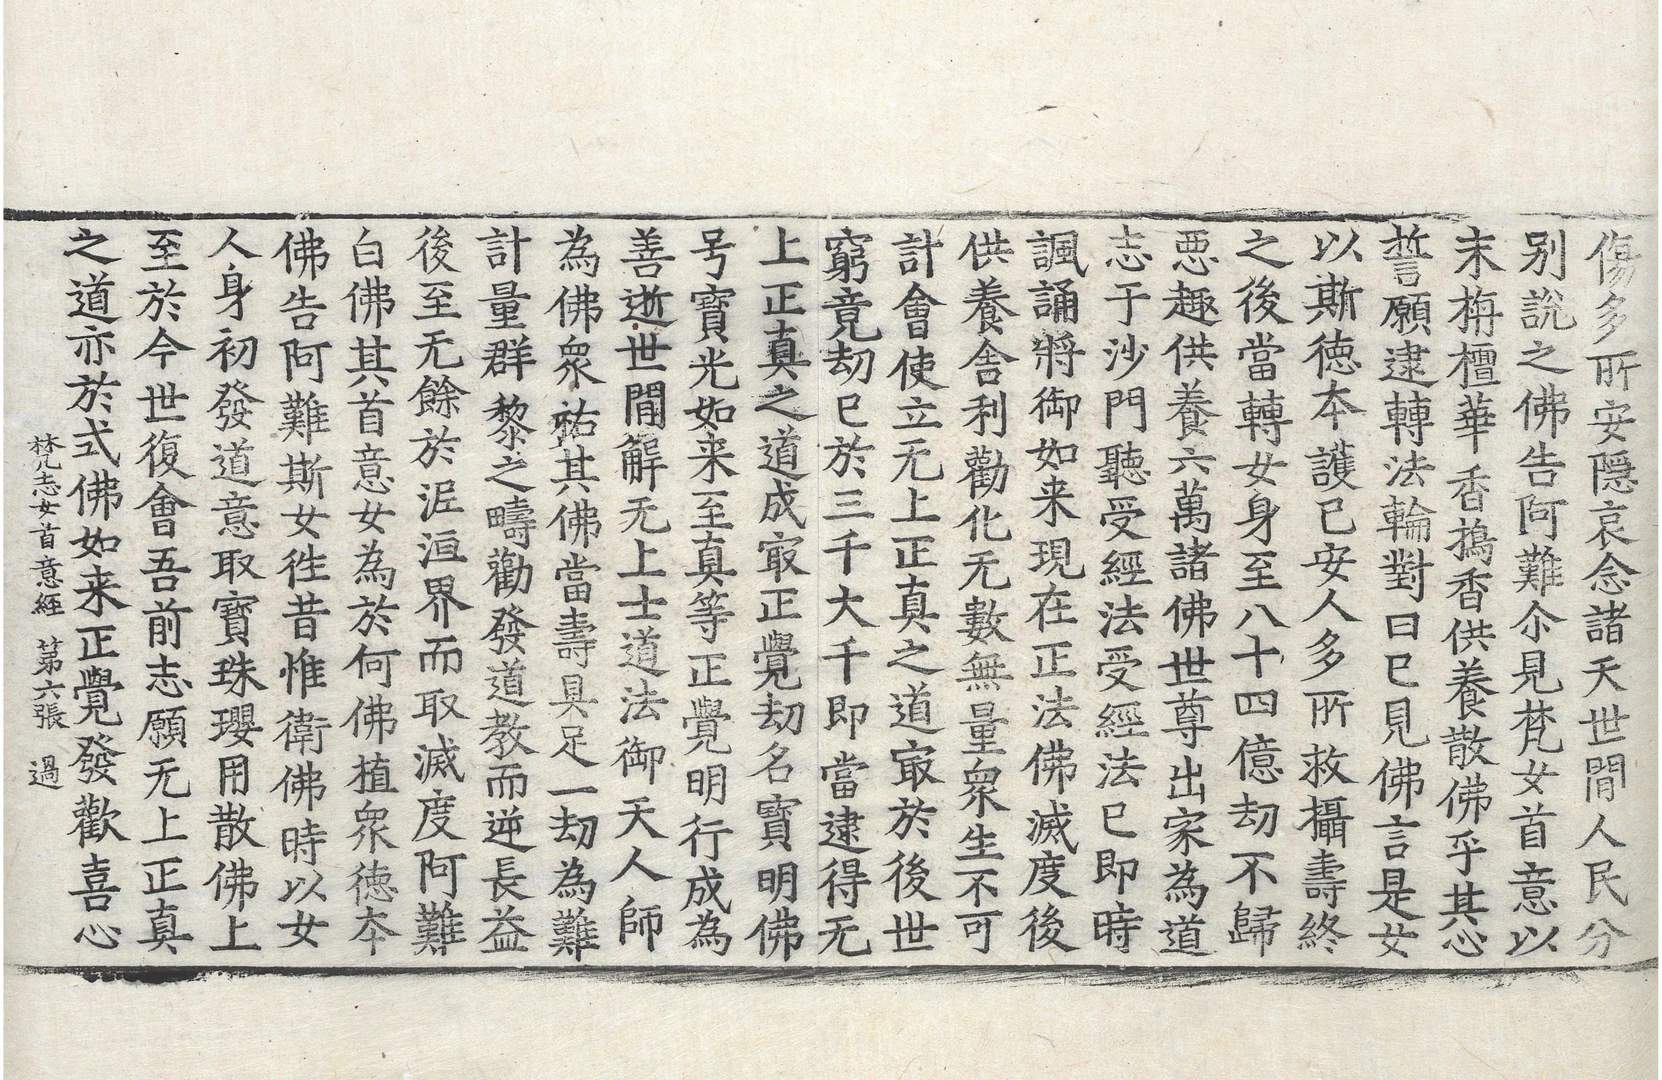 傷多所安隱哀念諸天世間人民分
別說之佛告阿難尒見梵女首意以
末栴檀華香擣香供養散佛乎其心
誓願逮轉法輪對曰已見佛言是女
以斯徳本護已安人多所救攝壽終
之後當轉女身至八十四億劫不歸
悪趣供養六萬諸佛世尊出家為道
志于沙門聽受經法受經法已即時
諷誦將御如来現在正法佛滅度後
供養舎利勸化无數無量衆生不可
計會使立无上正真之道㝡於後世
窮竟劫已於三千大千即當逮得无
上正真之道成㝡正覺劫名寶明佛
号寶光如来至真等正覺明行成為
善逝世間解无上士道法御天人師
為佛衆祐其佛當壽具足一劫為難
計量群黎之疇勸發道教而逆長益
後至无餘於泥洹界而取滅度阿難
白佛其首意女為於何佛植衆徳本
佛告阿難斯女徃昔惟衛佛時以女
人身初發道意取寶珠瓔用散佛上
至於今世復會吾前志願无上正真
之道亦於式佛如来正覺發歡喜心
梵志女首意經　第六張　過